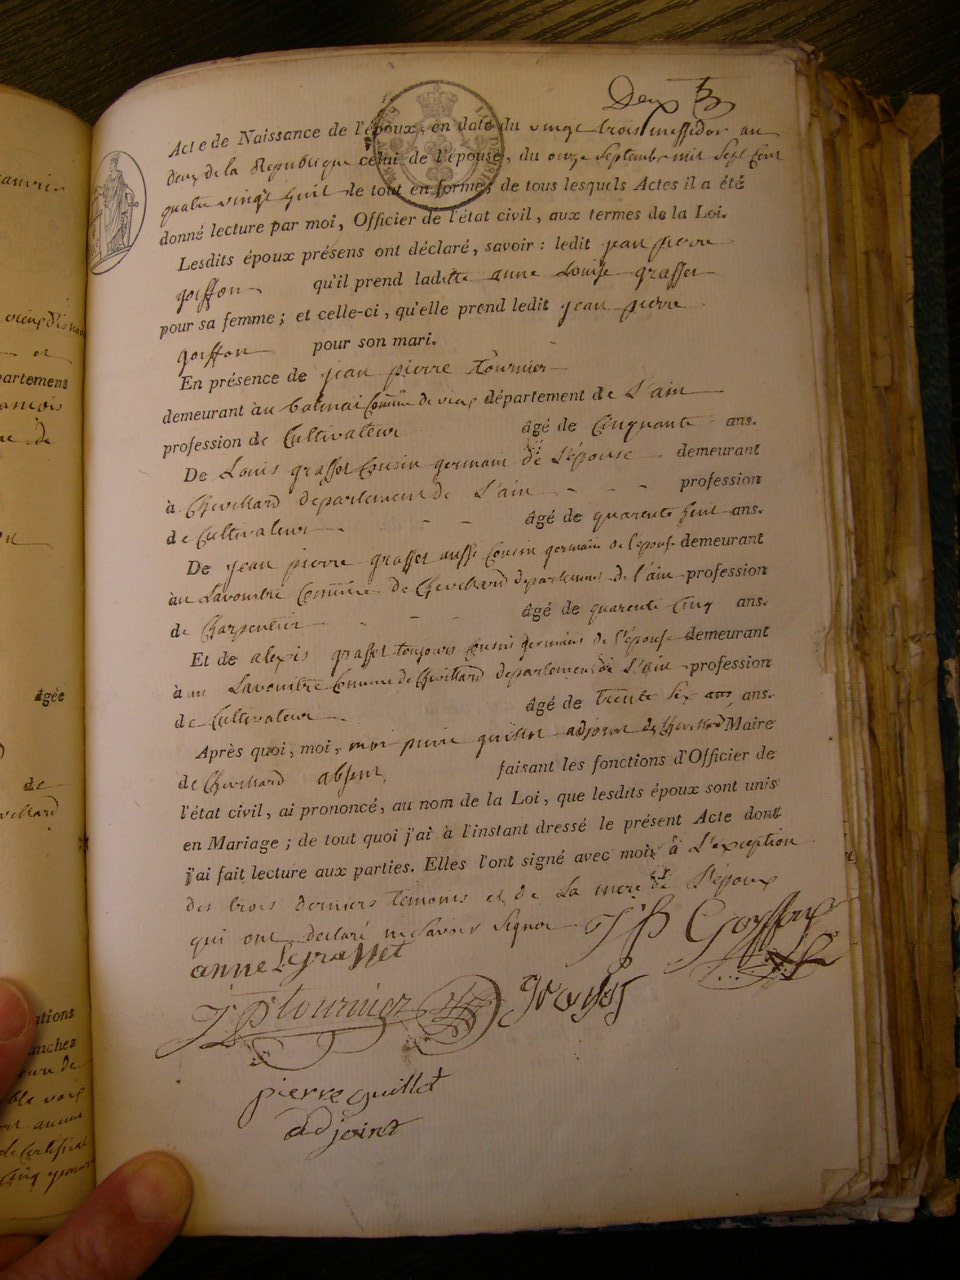 Deux
Acte de Naissance de l'époux, en date du vingt trois messidor an
deux de la Republique celui de l'épouse, du onze Septembre mil Sept Cent
quatre vingt huit le tout en formes, de tous lesquels Actes il a été
donné lecture par moi, Officier de l'état civil, aux termes de la Loi.
Lesdits époux présens ont déclaré, savoir : ledit jean pierre
goiffon qu'il prend laditte anne Louise grasset
pour sa femme ; et celle-ci, qu'elle prend ledit jean pierre
goiffon pour son mari.
En présence de jean pierre tournier
demeurant au balmai Commune de vieux département de L'ain
profession de Cultivateur âgé de Cinquante ans.
De Louis grasset Cousin germain de L'épouse demeurant
à Chevillard departement de L'ain profession
de Cultivateur âgé de quarente huit ans.
De jean pierre grasset aussi Cousin germain de l'épouse demeurant
au Lavouitre Commune de Chevillard departement de l'ain profession
de Charpentier âgé de quarente Cinq ans.
Et de alexis grasset toujours Cousin germain de l'épouse demeurant
à au Lavouitre Commune de Chevillard departement de L'ain profession
de Cultivateur âgé de trente six ans ans.
Après quoi, moi, moi pierre guillot adjoint de Chevillard Maire
de Chevillard absent, faisant les fonctions d'Officier de
l'état civil, ai prononcé, au nom de la Loi, que lesdits époux sont unis
en Mariage ; de tout quoi j'ai à l'instant dressé le présent Acte dont
j'ai fait lecture aux parties. Elles l'ont signé avec moi à L'exception
des trois derniers témoins et de La mere de L'époux
qui ont declaré ne Savoir Signer
JP Goyffon
anne L grasset
JP tournier
pierre guillot
adjoint